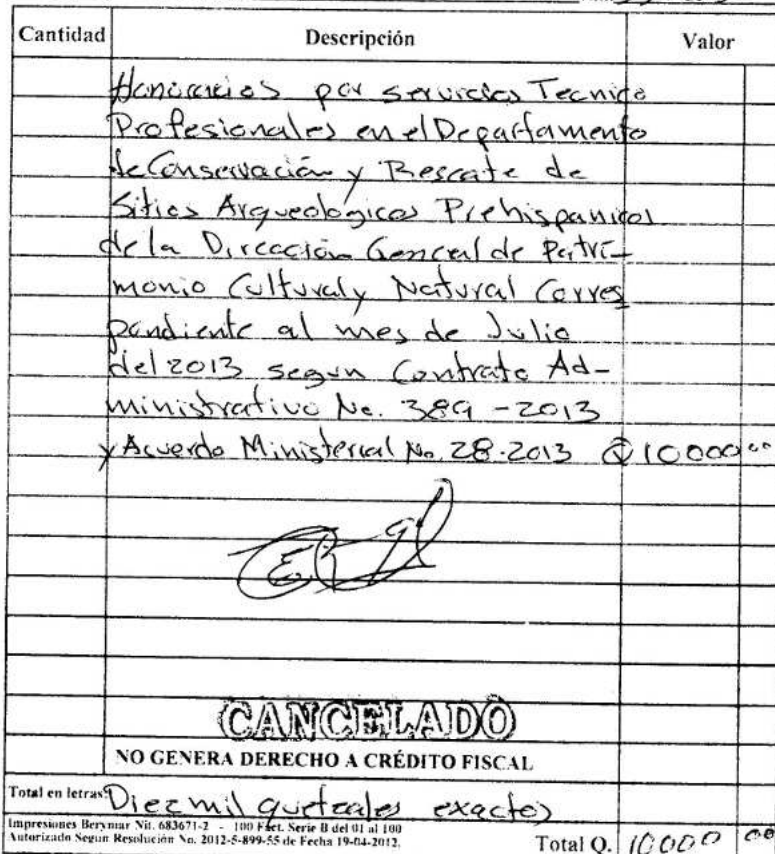 Cantidad Descripción Valor
Honorarios por servicios Tecnico
Profesionales en el Departamento
de Conservación y Rescate de
Sitios Arqueologicos Prehispanicos
de la Dirección General de Patri-
monio Cultural y Natural Corres
pondiente al mes de Julio
del 2013 segun Contrato Ad-
ministrativo No. 389 - 2013
y Acuerdo Ministerial No. 28-2013 Q 10000 00
CANCELADO
NO GENERA DERECHO A CRÉDITO FISCAL
Total en letras Diez mil quetzales exactos
Impresiones Berymar Nit. 683671-2 - 100 Fact. Serie B del 01 al 100
Autorizado Segun Resolución No. 2012-5-899-55 de Fecha 19-04-2012.
Total Q. 10000 00